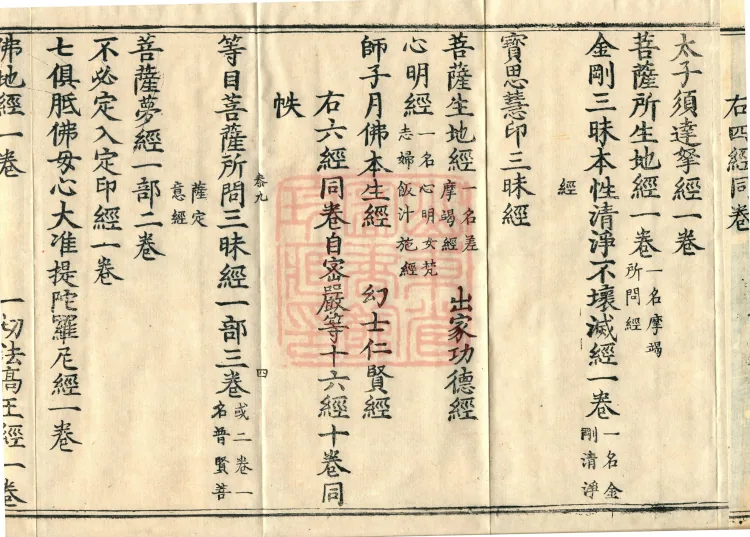 右四經同卷
太子須達拏經一卷
菩薩所生地經一卷 一名摩竭所問經
金剛三昧本性清淨不壞滅經一卷 一名金剛清淨
經
寶思慧印三昧經
菩薩生地經 一名差摩竭經 出家功德經
心明經 一名心明女梵志婦飯汁施經
師子月佛本生經 幻士仁賢經
右六經同卷自密嚴等十六經十卷同
帙
卷九 四
等目菩薩所問三昧經一部三卷 或二卷一名普賢菩
薩定意經
菩薩夢經一部二卷
不必定入定印經一卷
七俱胝佛母心大准提陀羅尼經一卷
佛地經一卷 一切法高王經一卷